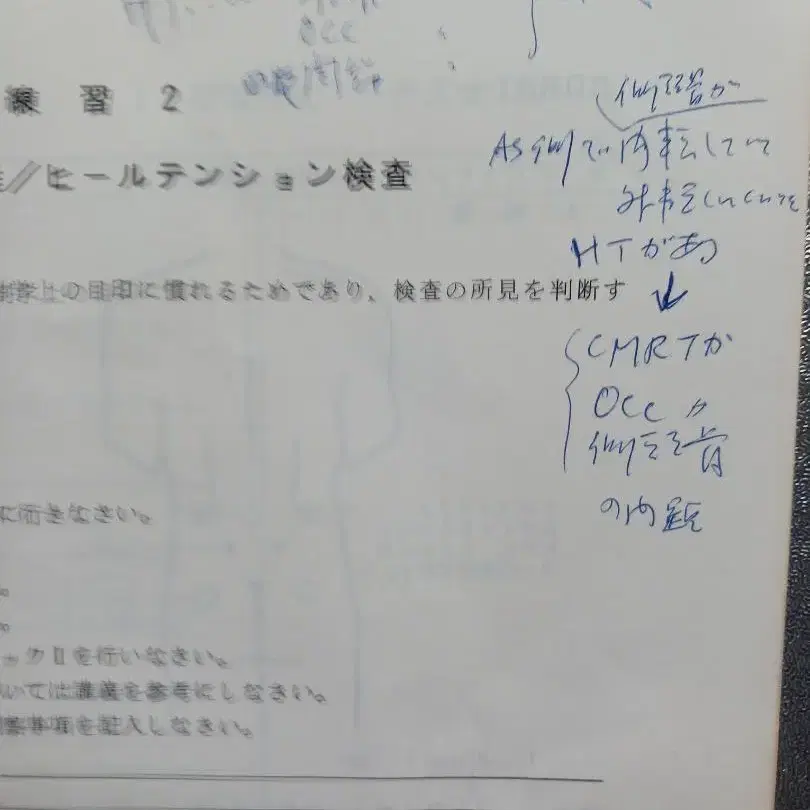 OCC
練習 2
側頭骨が
ヒールテンション検査
AS側で内転していて
外転しにくいを
HTがあ
制学上の目印に慣れるためであり、検査の所見を判断す
↓
CMRTか
OCCか
側頭骨
の問題
に行きなさい。
ックⅡを行いなさい。
いては講義を参考にしなさい。
事項を記入しなさい。